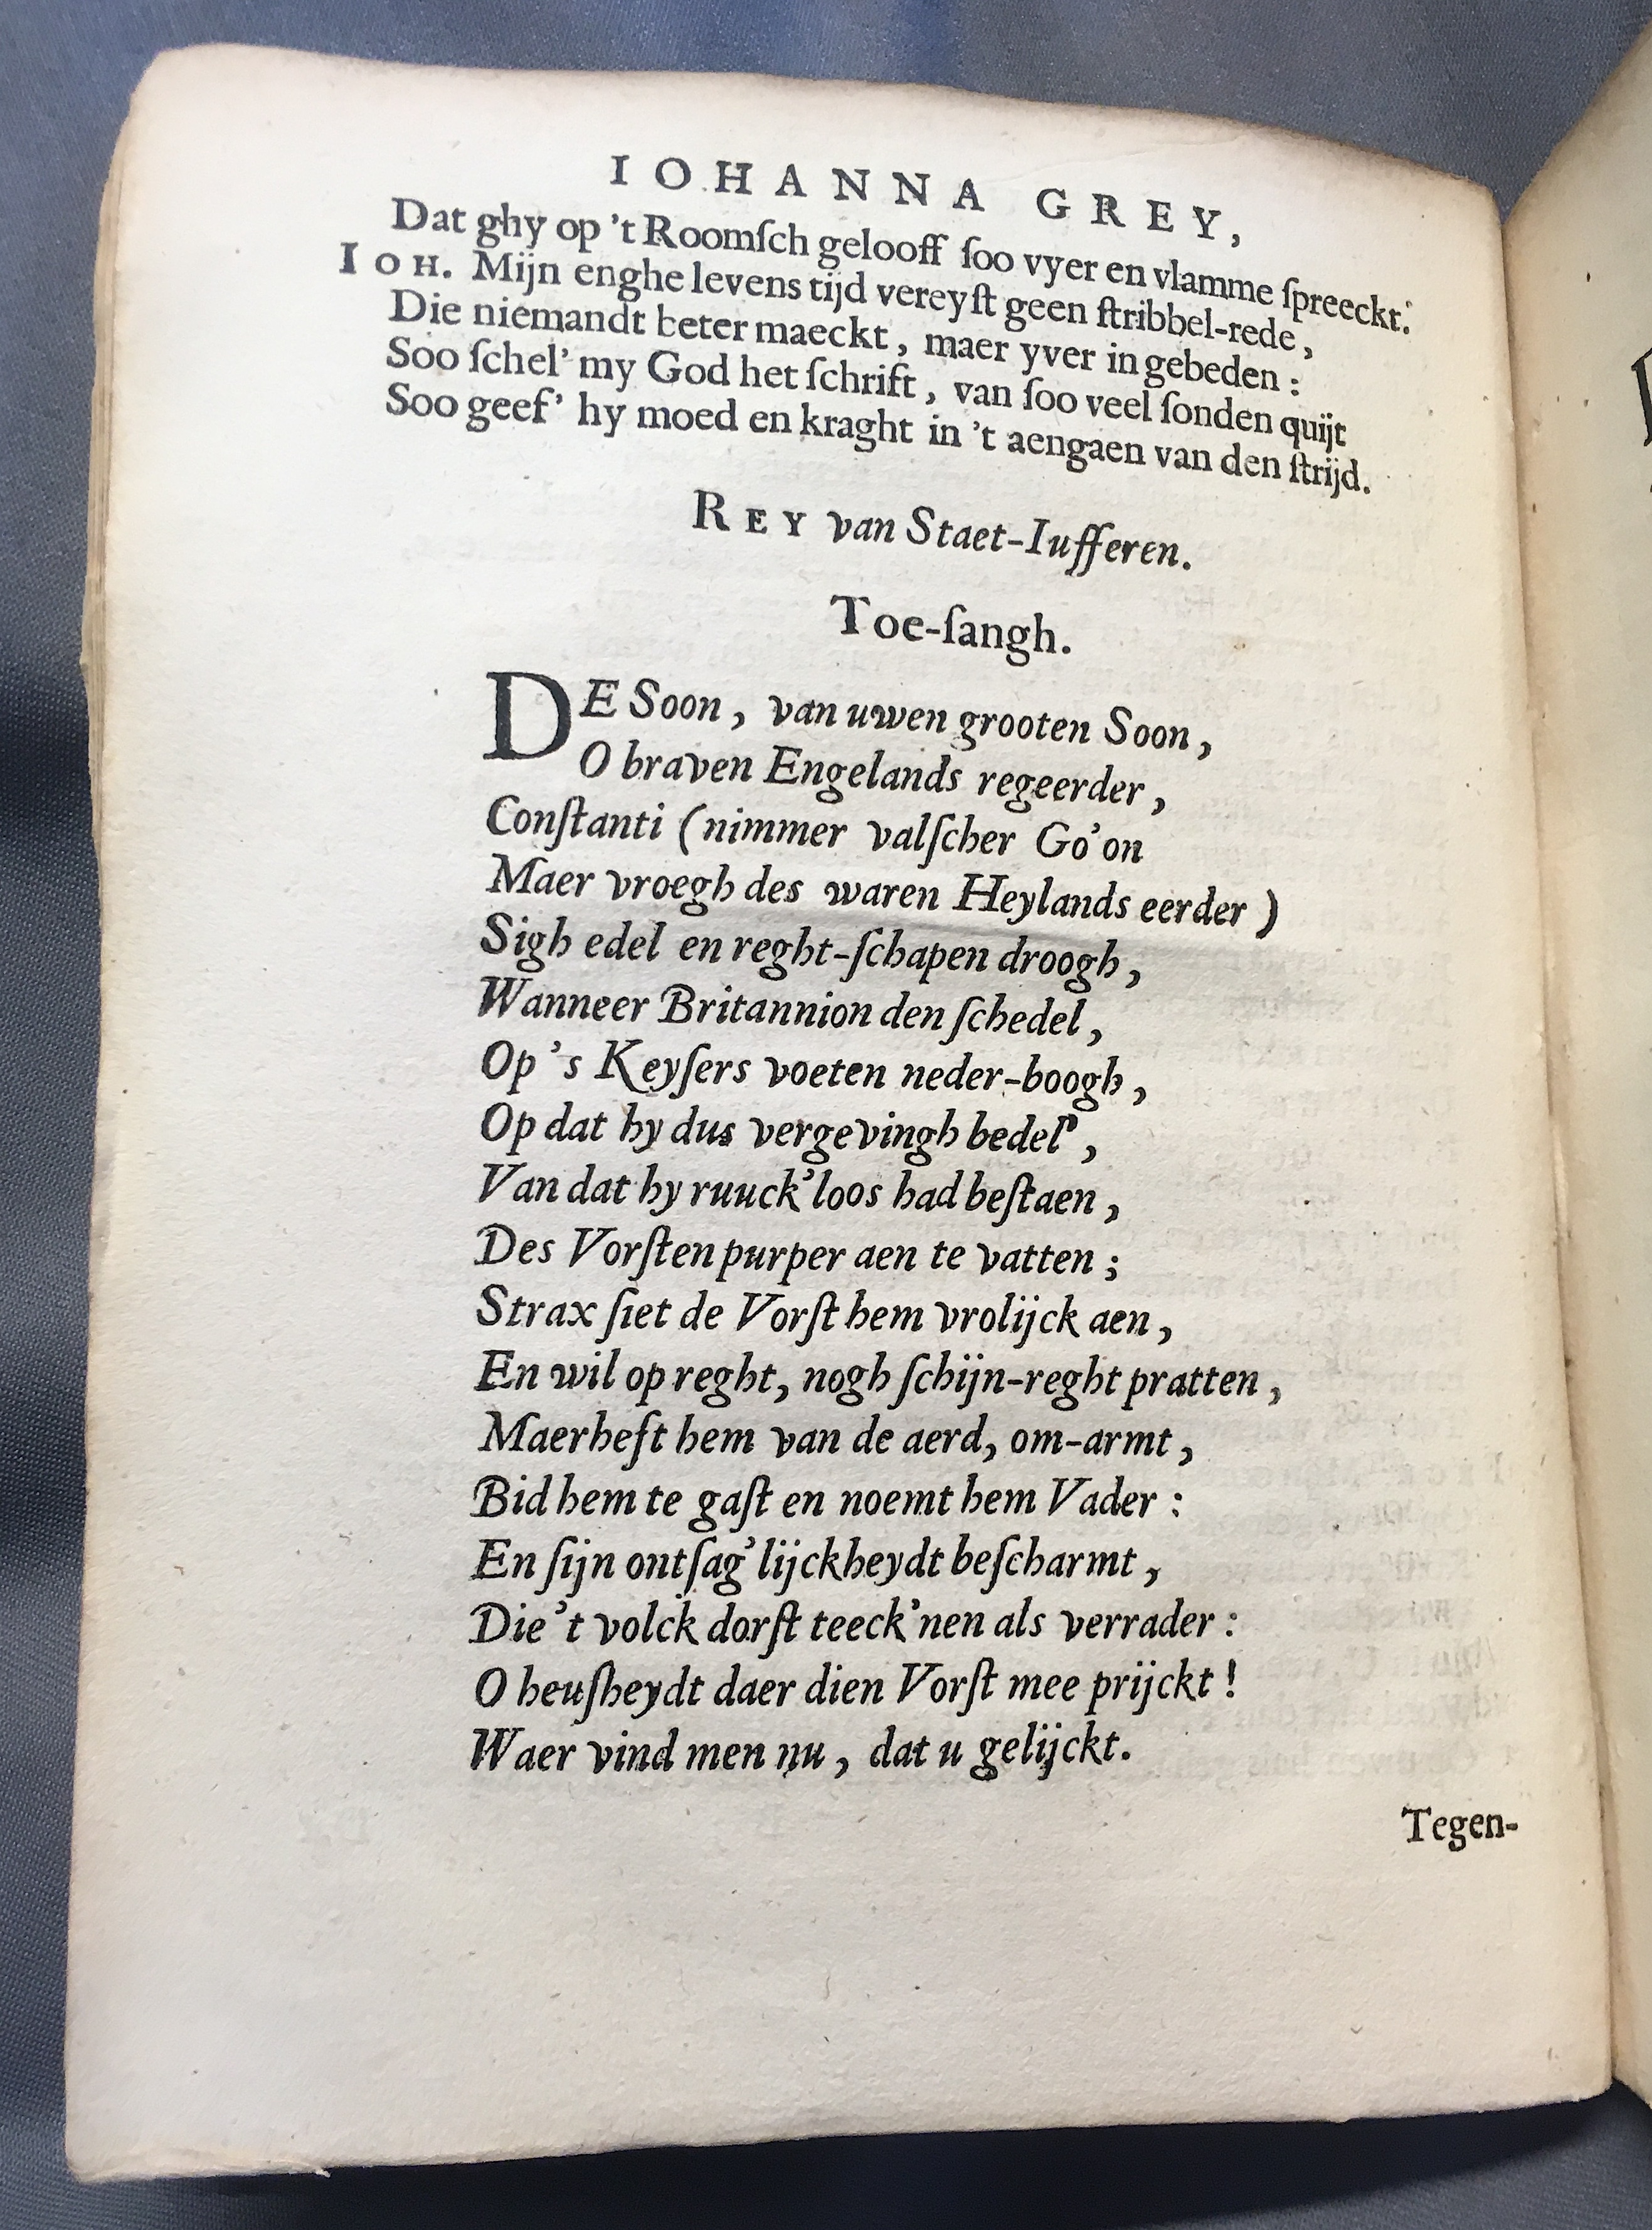 IOHANNA GREY,
Dat ghy op 't Roomſch gelooff ſoo vyer en vlamme ſpreeckt.
IOH. Mijn enghe levens tijd vereyſt geen ſtribbel-rede,
Die niemandt beter maeckt, maer yver in gebeden:
Soo ſchel' my God het ſchrift, van ſoo veel ſonden quijt
Soo geef' hy moed en kraght in 't aengaen van den ſtrijd.
REY van Staet-Iufferen.
Toe-ſangh.
DE Soon, van uwen grooten Soon,
O braven Engelands regeerder,
Conſtanti (nimmer valſcher Go'on
Maer vroegh des waren Heylands eerder)
Sigh edel en reght-ſchapen droogh,
Wanneer Britannion den ſchedel,
Op 's Keyſers voeten neder-boogh,
Op dat hy dus vergevingh bedel',
Van dat hy ruuck'loos had beſtaen,
Des Vorſten purper aen te vatten;
Strax ſiet de Vorſt hem vrolijck aen,
En wil op reght, nogh ſchijn-reght pratten,
Maer heft hem van de aerd, om-armt,
Bid hem te gaſt en noemt hem Vader:
En ſijn ontſag'lijckheydt beſcharmt,
Die 't volck dorſt teeck'nen als verrader:
O heuſheydt daer dien Vorſt mee prijckt!
Waer vind men nu, dat u gelijckt.
Tegen-